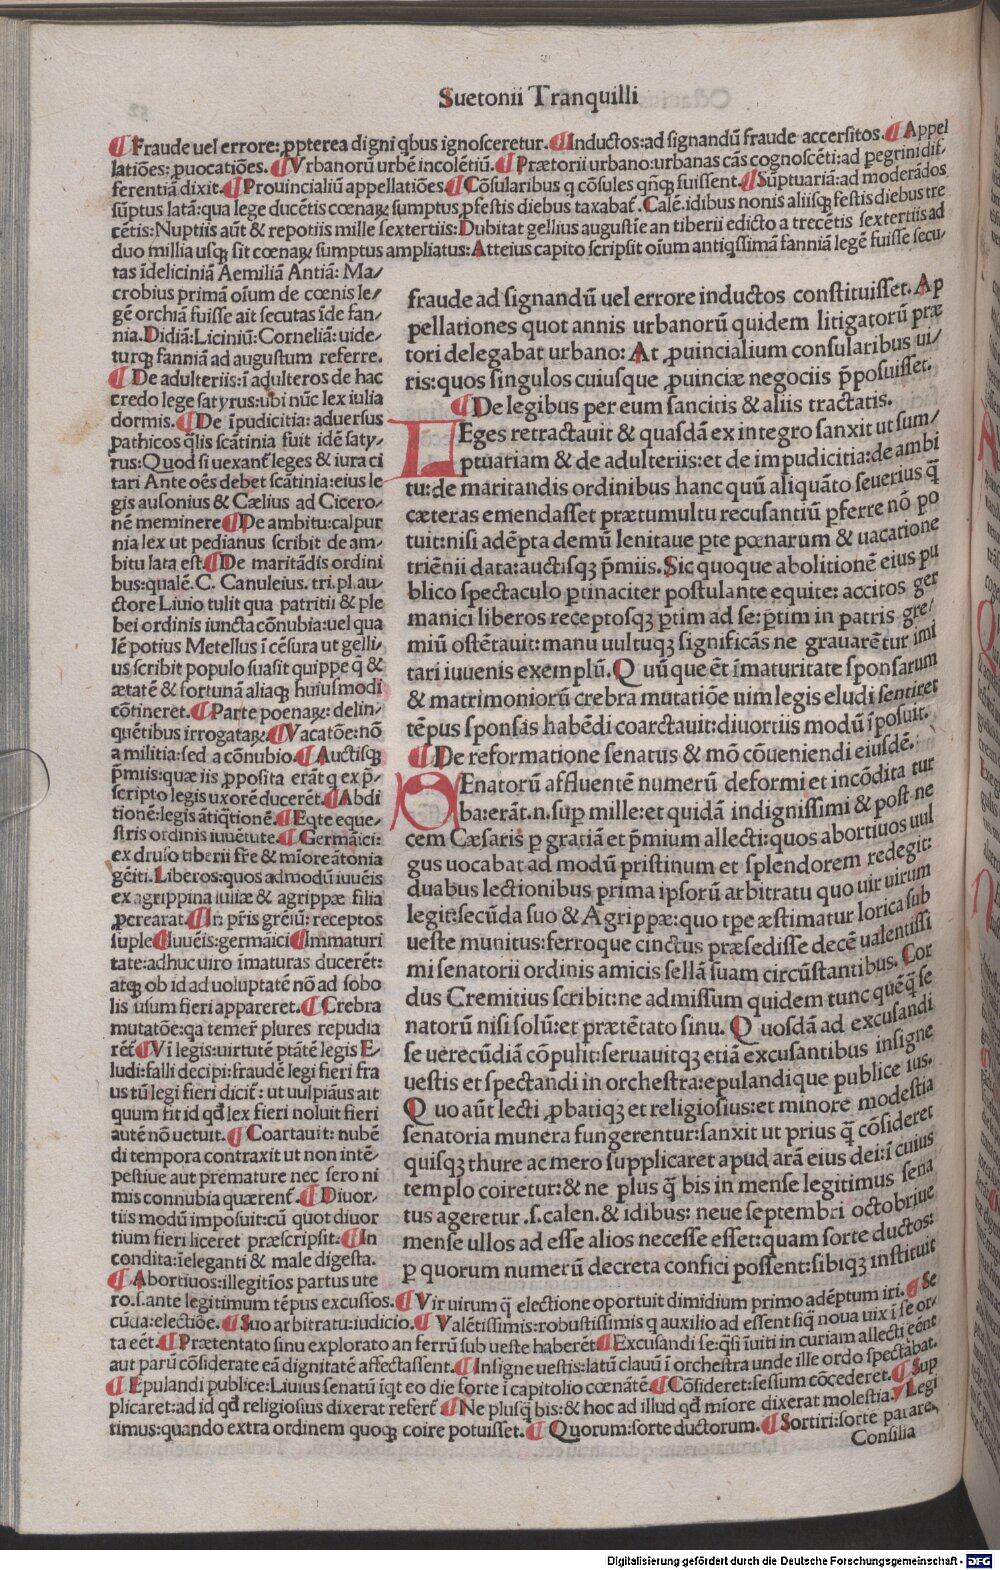 Suetonii Tranquilli
¶ Fraude uel errore: ꝓpterea digni qbus ignosceretur. ¶ Inductos: ad signandū fraude accersitos. ¶ Appel
latiōes: ꝓuocatiōes. ¶ Vrbanorū urbē incolētiū. ¶ Prætorii urbano: urbanas cās cognoscēti: ad pegrini dif
ferentiā dixit. ¶ Prouincialiū appellatiōes. ¶ Cōsularibus q cōsules qn̄qꝫ fuissent. ¶ Sūptuariā: ad moderādos
sūptus latā: qua lege ducētis cœnaꝝ sumptus ꝓfestis diebus taxabat̄. Calē. idibus nonis aliisqꝫ festis diebus tre
cētis: Nuptiis aūt & repotiis mille sextertiis: Dubitat gellius augusti e an tiberii edicto a trecētis sextertiis ad
duo millia usqꝫ sit cœnaꝝ sumptus ampliatus: Atteius capito scripsit oīum antiqssimā fanniā legē fuisse secu/
tas īde liciniā Aemiliā Antiā: Ma/
crobius primā oīum de cœnis le/
gē orchiā fuisse ait secutas īde fan/
nia. Didiā: Liciniū: Corneliā: uide/
turqꝫ fanniā ad augustum referre.
¶ De adulteriis: ī adulteros de hac
credo lege satyrus: ubi nūc lex iulia
dormis. ¶ De īpudicitia: aduersus
pathicos qlis scātinia fuit idē saty/
rus: Quod si uexant̄ leges & iura ci
tari Ante oēs debet scātinia: eius le
gis ausonius & Cælius ad Cicero/
nē meminere ¶ De ambitu: calpur
nia lex ut pedianus scribit de am/
bitu lata est. ¶ De maritādis ordini
bus: qualē. C. Canuleius. tri. pl. au/
ctore Liuio tulit qua patritii & ple
bei ordinis iuncta cōnubia: uel qua
lē potius Metellus ī cēsura ut gelli/
us scribit populo suasit quippe q̄ &
ætatē & fortunā aliaqꝫ huiusmodi
cōtineret. ¶ Parte poenaꝝ: delin/
quētibus irrogataꝝ. ¶ Vacatōe: nō
a militia: sed a cōnubio. ¶ Auctisqꝫ
p̄miis: quæ iis ꝓposita erāt q ex p̄/
scripto legis uxorē ducerēt. ¶ Abdi
tionē: legis ātiqtionē. ¶ Eqte eque/
stris ordinis iuuētute. ¶ Germāici:
ex druso tiberii fr̄e & mīore ātonia
gēiti. Liberos: quos admodū iuuēis
ex agrippina iuliæ & agrippæ filia
ꝓcrearat. ¶ In pr̄is grēiū: receptos
suple ¶ Iuuēis: germāici ¶ Immaturi
tate: adhuc uiro īmaturas ducerēt:
atqꝫ ob id ad uoluptatē nō ad sobo
lis usum fieri appareret. ¶ Crebra
mutatōe: qa temer̄ plures repudia
rēt̄ ¶ Vī legis: uirtutē ptātē legis E/
ludi: falli decipi: fraudē legi fieri fra
us tū legi fieri dicit̄: ut uulpiāus ait
quum fit id qđ lex fieri noluit fieri
autē nō uetuit. ¶ Coartauit: nubē
di tempora contraxit ut non intē/
pestiue aut premature nec sero ni
mis connubia quærent̄. ¶ Diuor/
tiis modū imposuit: cū quot diuor
tium fieri liceret præscripsit: ¶ In
condita: īeleganti & male digesta.
¶ Abortiuos: illegitīos partus ute
fraude ad signandū uel errore inductos constituisset. Ap
pellationes quot annis urbanorū quidem litigatorū præ
tori delegabat urbano: At ꝓuincialium consularibus ui/
ris: quos singulos cuiusque ꝓuinciæ negociis p̄posuisset.
¶ De legibus per eum sancitis & aliis tractatis.
LEges retractauit & quasdā ex integro sanxit ut sum/
ptuariam & de adulteriis: et de impudicitia: de ambi
tu: de maritandis ordinibus hanc quū aliquāto seuerius q̄
cæteras emendasset prætumultu recusantiū ꝑferre nō po
tuit: nisi adēpta demū lenitaue ꝑte pœnarum & uacatione
triēnii data: auctisqꝫ p̄miis. Sic quoque abolitionē eius pu
blico spectaculo ꝑtinaciter postulante equite: accitos ger
manici liberos receptosqꝫ ꝑtim ad se: ꝑtim in patris gre/
miū ostētauit: manu uultuqꝫ significās ne grauarētur imi
tari iuuenis exemplū. Quūque ēt īmaturitate sponsarum
& matrimoniorū crebra mutatiōe uim legis eludi sentiret
tēpus sponsas habēdi coarctauit: diuortiis modū īposuit.
¶ De reformatione senatus & mō cōueniendi eiusdē.
SEnatorū affluentē numerū deformi et incōdita tur
ba: erāt. n. suꝑ mille: et quidā indignissimi & post ne
cem Cæsaris ꝑ gratiā et p̄mium allecti: quos abortiuos uul
gus uocabat ad modū pristinum et splendorem redegit:
duabus lectionibus prima ipsorū arbitratu quo uir uirum
legit: secūda suo & Agrippæ: quo tꝑe æstimatur lorica sub
ueste munitus: ferroque cinctus præsedisse decē ualentissi
mi senatorii ordinis amicis sellā suam circūstantibus. Cor
dus Cremitius scribit: ne admissum quidem tunc quēq̄ se
natorū nisi solū: et prætētato sinu. Quosdā ad excusandi
se uerecūdiā cōpulit: seruauitqꝫ etiā excusantibus insigne
uestis et spectandi in orchestra: epulandique publice ius.
Quo aūt lecti ꝓbatiqꝫ et religiosius: et minore modestia
senatoria munera fungerentur: sanxit ut prius q̄ cōsideret
quisqꝫ thure ac mero supplicaret apud arā eius dei: ī cuius
templo coiretur: & ne plus q̄ bis in mense legitimus sena
tus ageretur .s. calen. & idibus: neue septembri octobriue
mense ullos ad esse alios necesse esset: quam sorte ductos:
ꝑ quorum numerū decreta confici possent: sibiqꝫ instituit
ro. s. ante legitimum tēpus excussos. ¶ Vir uirum q̄ electione oportuit dimidium primo adēptum iri. ¶ Se
cūda: electiōe. ¶ Suo arbitratu: iudicio. ¶ Valētissimis: robustissimis q auxilio ad essent siq̄ noua uix ī se or/
ta eēt. ¶ Prætentato sinu explorato an ferrū sub ueste haberēt ¶ Excusandi se: q̄si īuiti in curiam allecti eēnt
aut parū cōsiderate eā dignitatē affectassent. ¶ Insigne uestis: latū clauū ī orchestra unde ille ordo spectābat.
¶ Epulandi publice: Liuius senatū īqt eo die forte ī capitolio cœnātē ¶ Cōsideret: sessum cōcederet. ¶ Sup
plicaret: ad id qđ religiosius dixerat refert̄ ¶ Ne plusq̄ bis: & hoc ad illud qđ mīore dixerat molestia. ¶ Legi
timus: quando extra ordinem quoqꝫ coire potuisset. ¶ Quorum: sorte ductorum. ¶ Sortiri: sorte parare.
Consilia
Digitalisierung gefördert durch die Deutsche Forschungsgemeinschaft - DFG